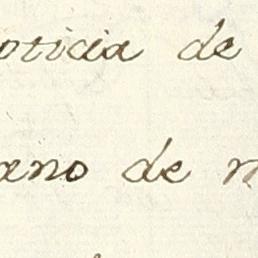 oticia de
eno de